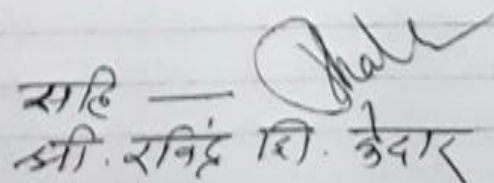 सहि —
श्री. रविंद्र शि. केदार